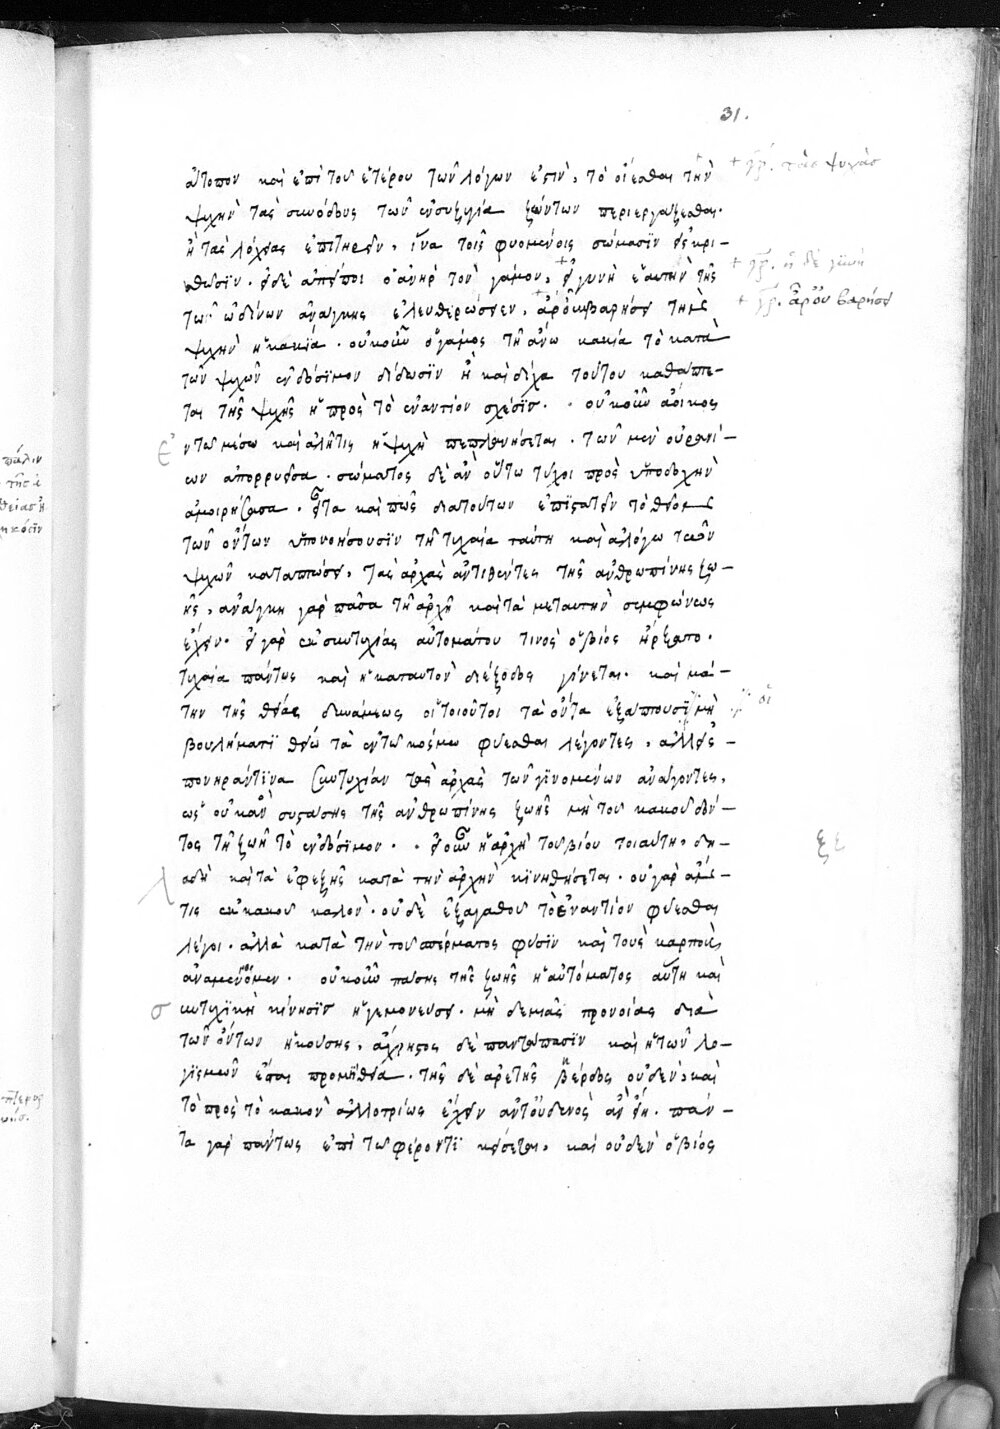 31.
ἄτοπον καὶ ἐπὶ τοῦ ἑτέρου τῶν λόγων ἐστὶν, τὸ οἴεσθαι τὴν
+ γρ. τὰς ψυχὰς
ψυχὴν τὰς συνόδους τῶν ἐν συζυγία ζώντων περιεργάζεσθαι.
ἢ τὰς λόχειας ἐπιτηρεῖν, ἵνα τοῖς φυομένοις σώμασιν εἰσκρι-
+ γρ. ἡ δὲ γυνὴ
θῶσιν. εἰ δὲ ἀπείποι ὁ ἀνὴρ τὸν γάμον, + εἰ γυνὴ ἑαυτὴν τῆς
+ γρ. ἆρ' οὖν βαρήσει
τῶν ὠδίνων ἀνάγκης ἐλευθερώσειεν, + ἆρ' οὐ βαρήσει τὴν
ψυχὴν ἡ κακία. οὐκοῦν ὁ γάμος τῇ ἄνω κακία τὸ κατὰ
τῶν ψυχῶν ἐνδόσιμον δίδωσιν ἢ καὶ δίχα τούτου καθάπτε-
ται τῆς ψυχῆς ἡ πρὸς τὸ ἐναντίον σχέσις. οὐκοῦν ἄοικος
ἐν τῶ μέσω καὶ ἀλήτις ἡ ψυχὴ πεπλανήσεται. τῶν μὲν οὐρανί-
ων ἀπορρυεῖσα. σώματος δὲ ἂν οὕτω τύχοι πρὸς ὑποδοχὴν
ἀμοιρήσασα. εἶτα καὶ πῶς διὰ τούτων ἐπιστατεῖν τὸ θεῖον
τῶν ὄντων ὑπονοήσουσιν τῇ τυχαία ταύτη καὶ ἀλόγω τῶν
ψυχῶν καταπτώσει, τὰς ἀρχὰς ἀντιθέντες τῆς ἀνθρωπίνης ζω-
ῆς, ἀνάγκη γὰρ πᾶσα τῇ ἀρχῇ καὶ τὰ μετ' αυτὴν συμφώνως
ἔχειν. εἰ γὰρ ἐκ συντυχίας αὐτομάτου τινὸς ὁ βίος ἤρξατο.
τυχαία πάντως καὶ ἡ κατ' αυτὸν διέξοδος γίνεται. καὶ μά-
την τῆς θείας δυνάμεως οἱ τοιοῦτοι τὰ ὄντα ἐξάπτουσιν μὴ
βουλήματι θείω τὰ ἐν τῶ κόσμω φύεσθαι λέγοντες, ἀλλ' εἰς
πονηράν τινα συντυχίαν τὰς ἀρχὰς τῶν γινομένων ἀνάγοντες,
ὡς οὐκ ἂν συστάσης τῆς ἀνθρωπίνης ζωῆς μὴ τοῦ κακοῦ δόν-
τος τῇ ζωῇ τὸ ἐνδόσιμον. εἰ οὖν ἡ ἀρχὴ τοῦ βίου τοιαύτη, δη-
λαδὴ καὶ τὰ ἐφεξῆς κατὰ τὴν ἀρχὴν κινηθήσεται. οὐ γὰρ ἄν
τις ἐκ κακοῦ καλὸν. οὐδὲ ἐξ ἀγαθοῦ τὸ ἐναντίον φύεσθαι
λέγοι. ἀλλὰ κατὰ τὴν τοῦ σπέρματος φύσιν καὶ τοὺς καρποὺς
ἀναμένομεν. οὐκοῦν πάσης τῆς ζωῆς ἡ αὐτόματος αὕτη καὶ
συντυχικὴ κίνησις ἡγεμονεύσει. μηδεμιᾶς προνοίας διὰ
τῶν ὄντων ἡκούσης, ἄχρηστος δὲ παντάπασιν καὶ ἡ τῶν λο-
γισμῶν ἔσται προμήθεια. τῆς δὲ ἀρετῆς κέρδος οὐδὲν, καὶ
τὸ πρὸς τὸ κακὸν ἀλλοτρίως ἔχειν ἀντ' οὐδενὸς ἂν εἴη. πάν-
τα γὰρ πάντως ἐπὶ τῶ φέροντι κείσεται, καὶ οὐδὲν ὁ βίος